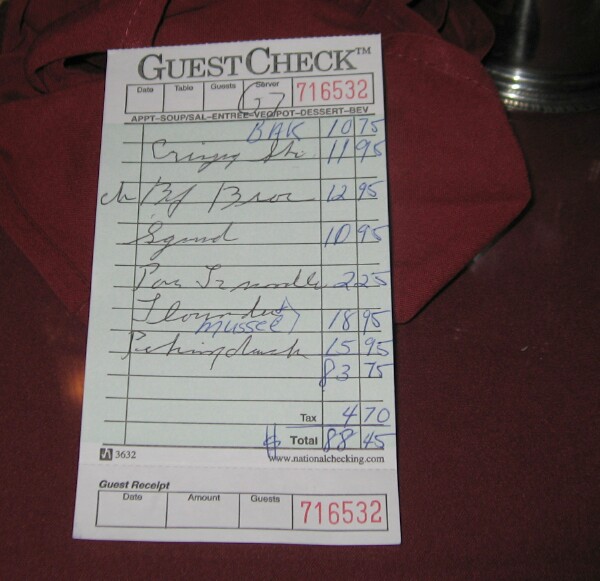 GUESTCHECK™
Date Table Guests Server 716532
G7
APPT-SOUP/SAL-ENTREE-VEG/POT-DESSERT-BEV
BAK 10 75
Crispy 11 95
Bf 12 95
Squid 10 95
Pan 2 25
Flounder
mussel 18 95
Peking duck 15 95
83 75
Tax 4 70
$ Total 88 45
3632 www.nationalchecking.com
Guest Receipt
Date Amount Guests 716532